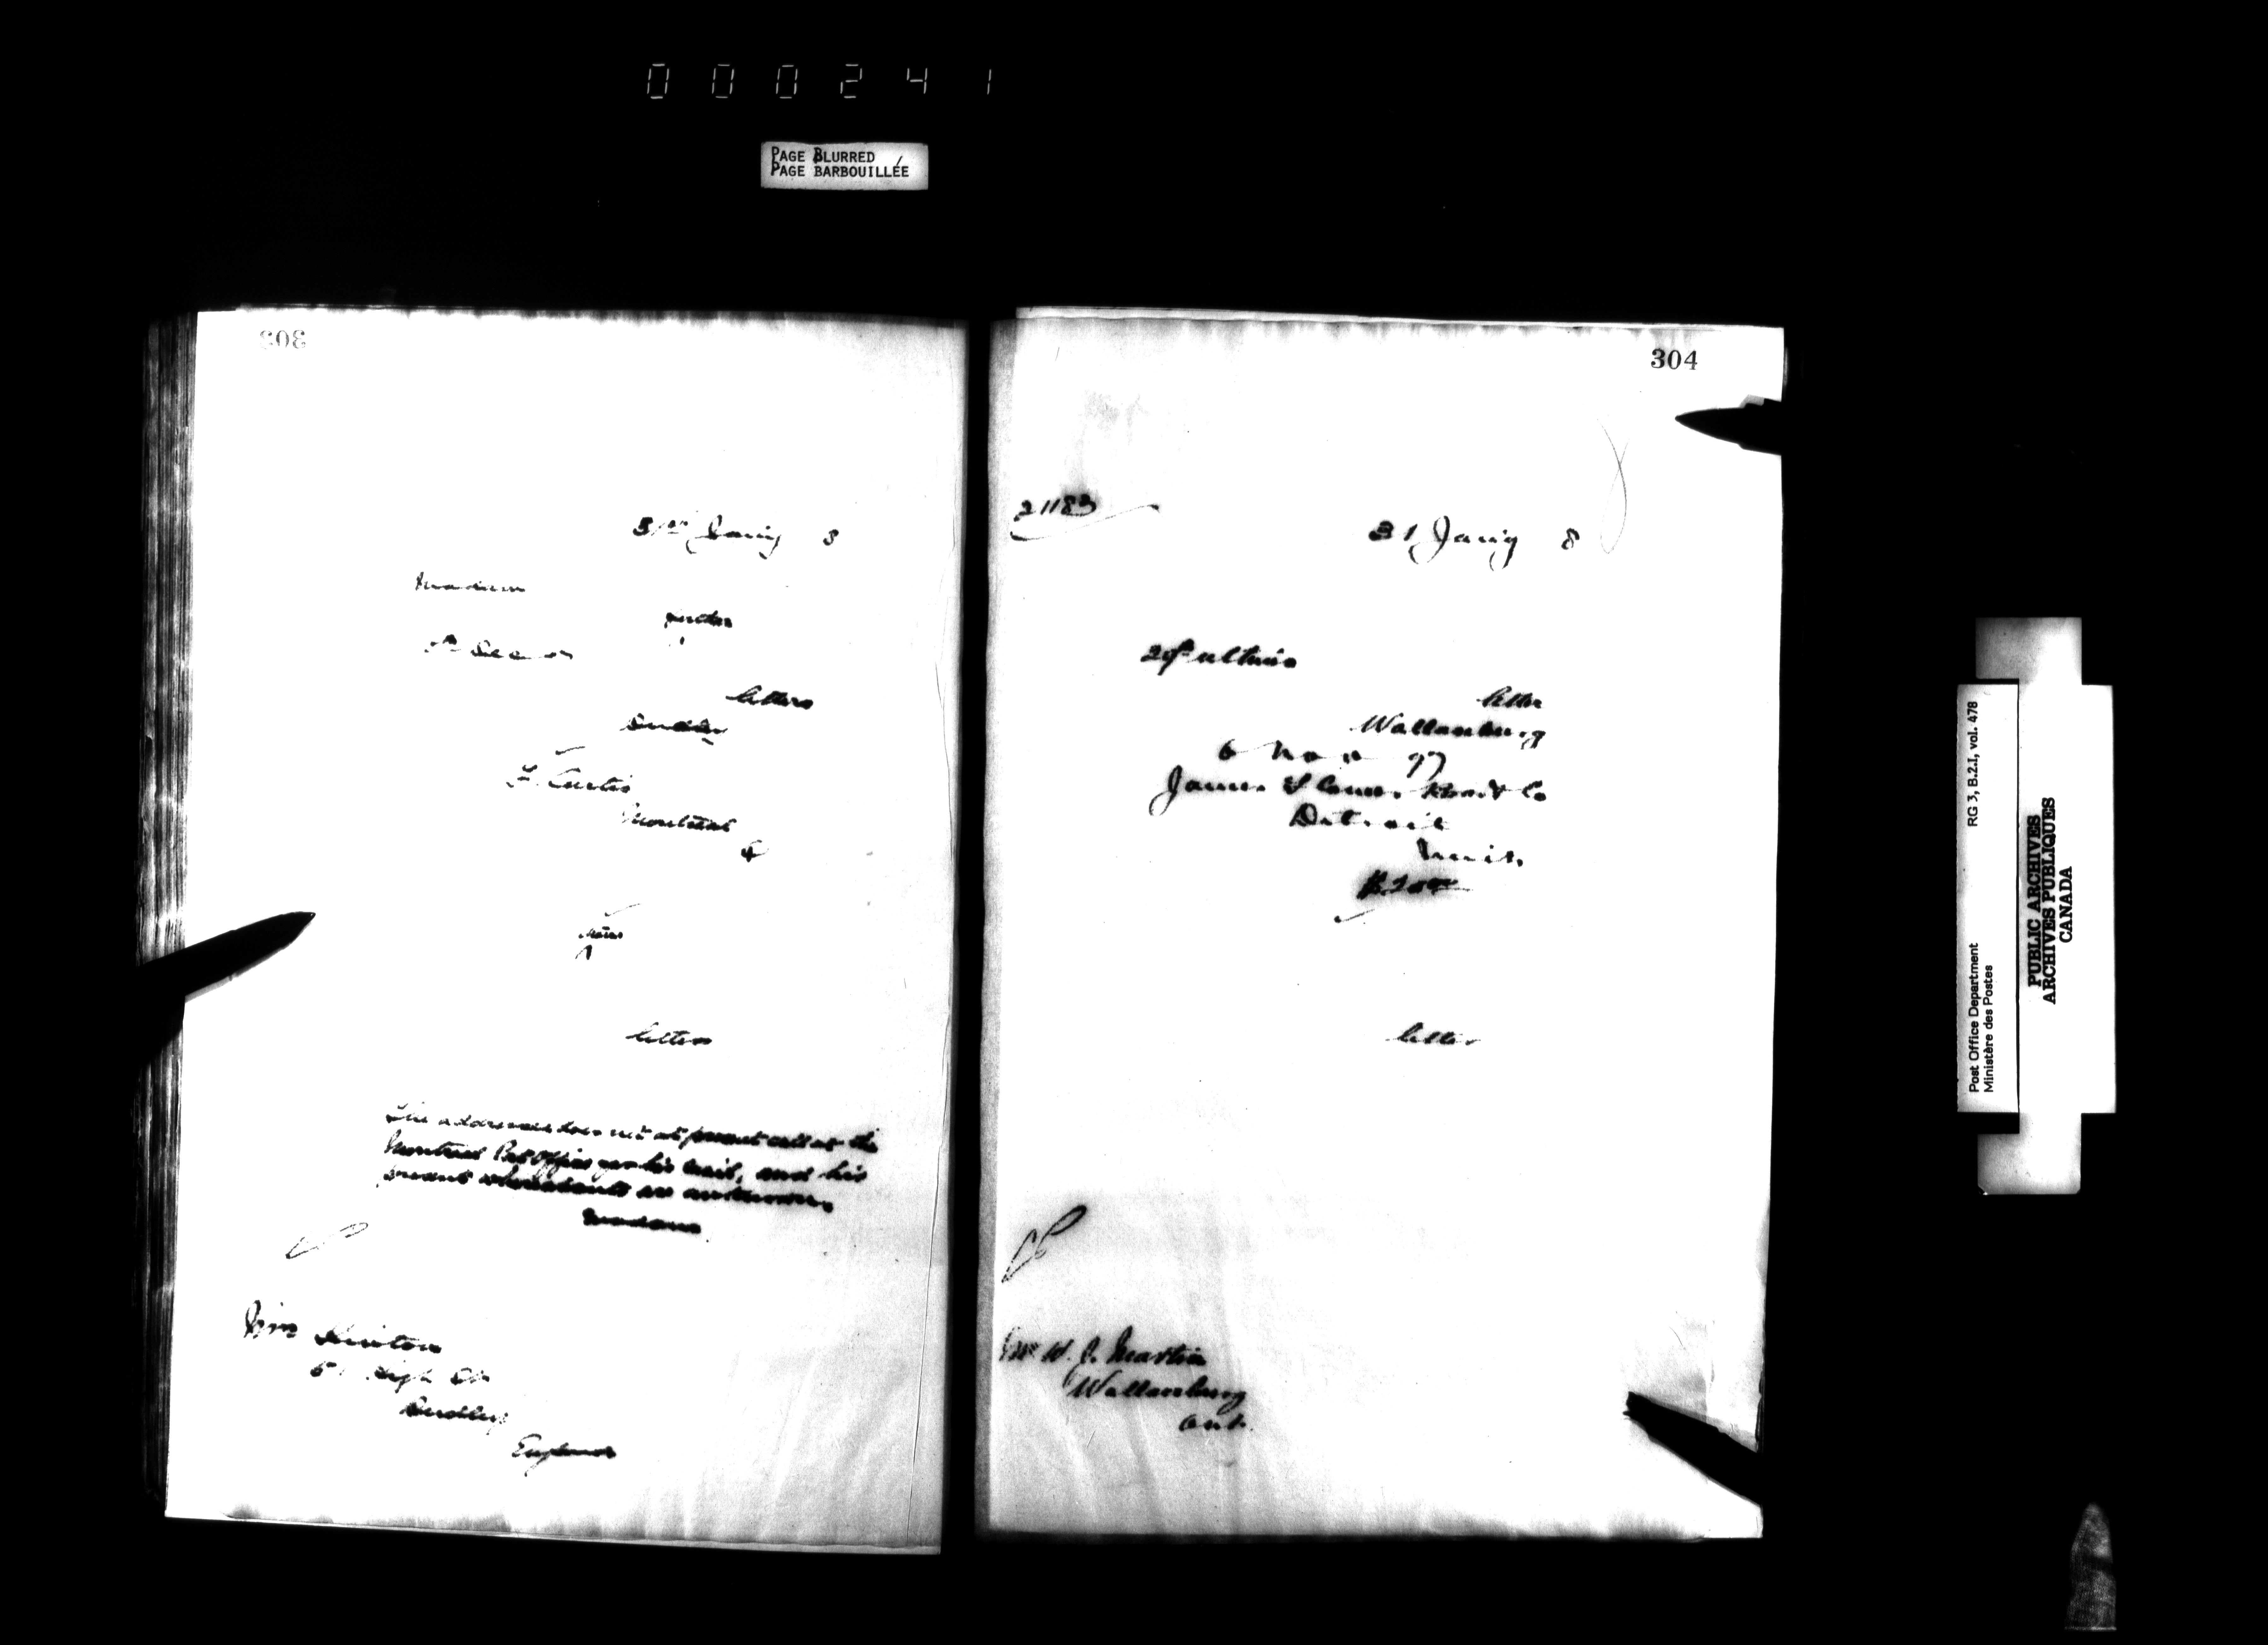 000241
PAGE BLURRED
PAGE BARBOUILLÉE
303
31st Jany 8
Madam
letters
Dudley
F. Curtis
Montreal
letters
The addressee does not at present call at the
Montreal Post Office for his mail, and his
present whereabouts are unknown.
Madam
51 High St
Dudley
England
304
21183
31 Jany 8
29th ultimo
letter
Wallaceburg
6 Nov 97
James
Detroit
Mich.
letter
Mr W. J. Martin
Wallaceburg
Ont.
Post Office Department RG 3, B.2.I, vol. 478
Ministère des Postes
PUBLIC ARCHIVES
ARCHIVES PUBLIQUES
CANADA